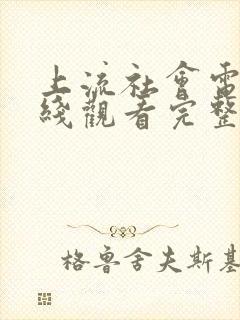 上流社會電
綫觀看完整
格魯舍夫斯基